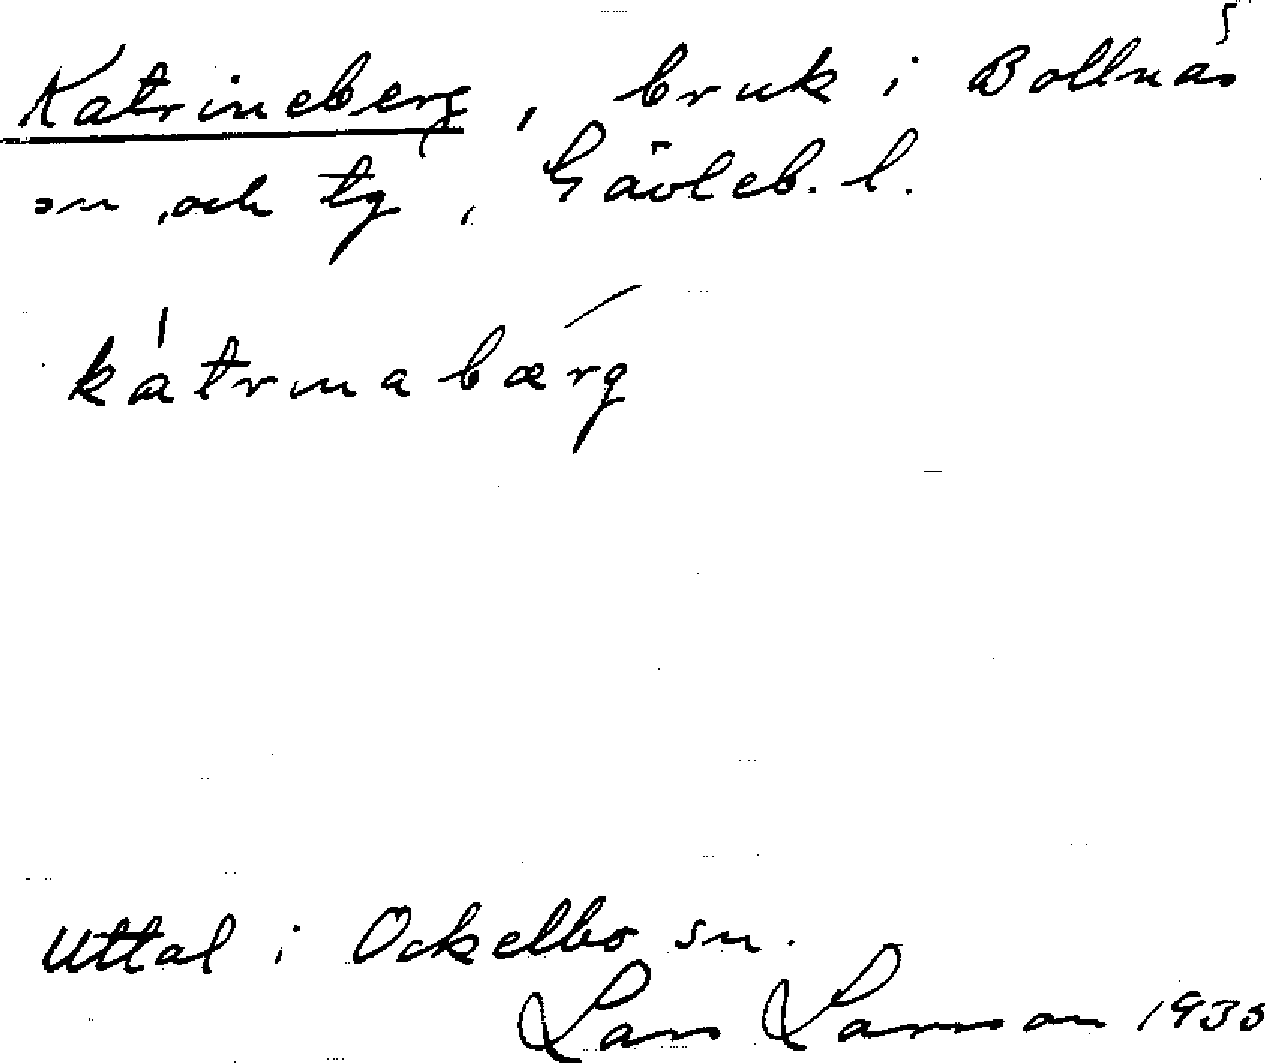 Katrineberg, bruk i Bollnäs
sn och tg, Gävleb. l.
kátrinabǽrg
Uttal i Ockelbo sn.
Lars Larsson 1933